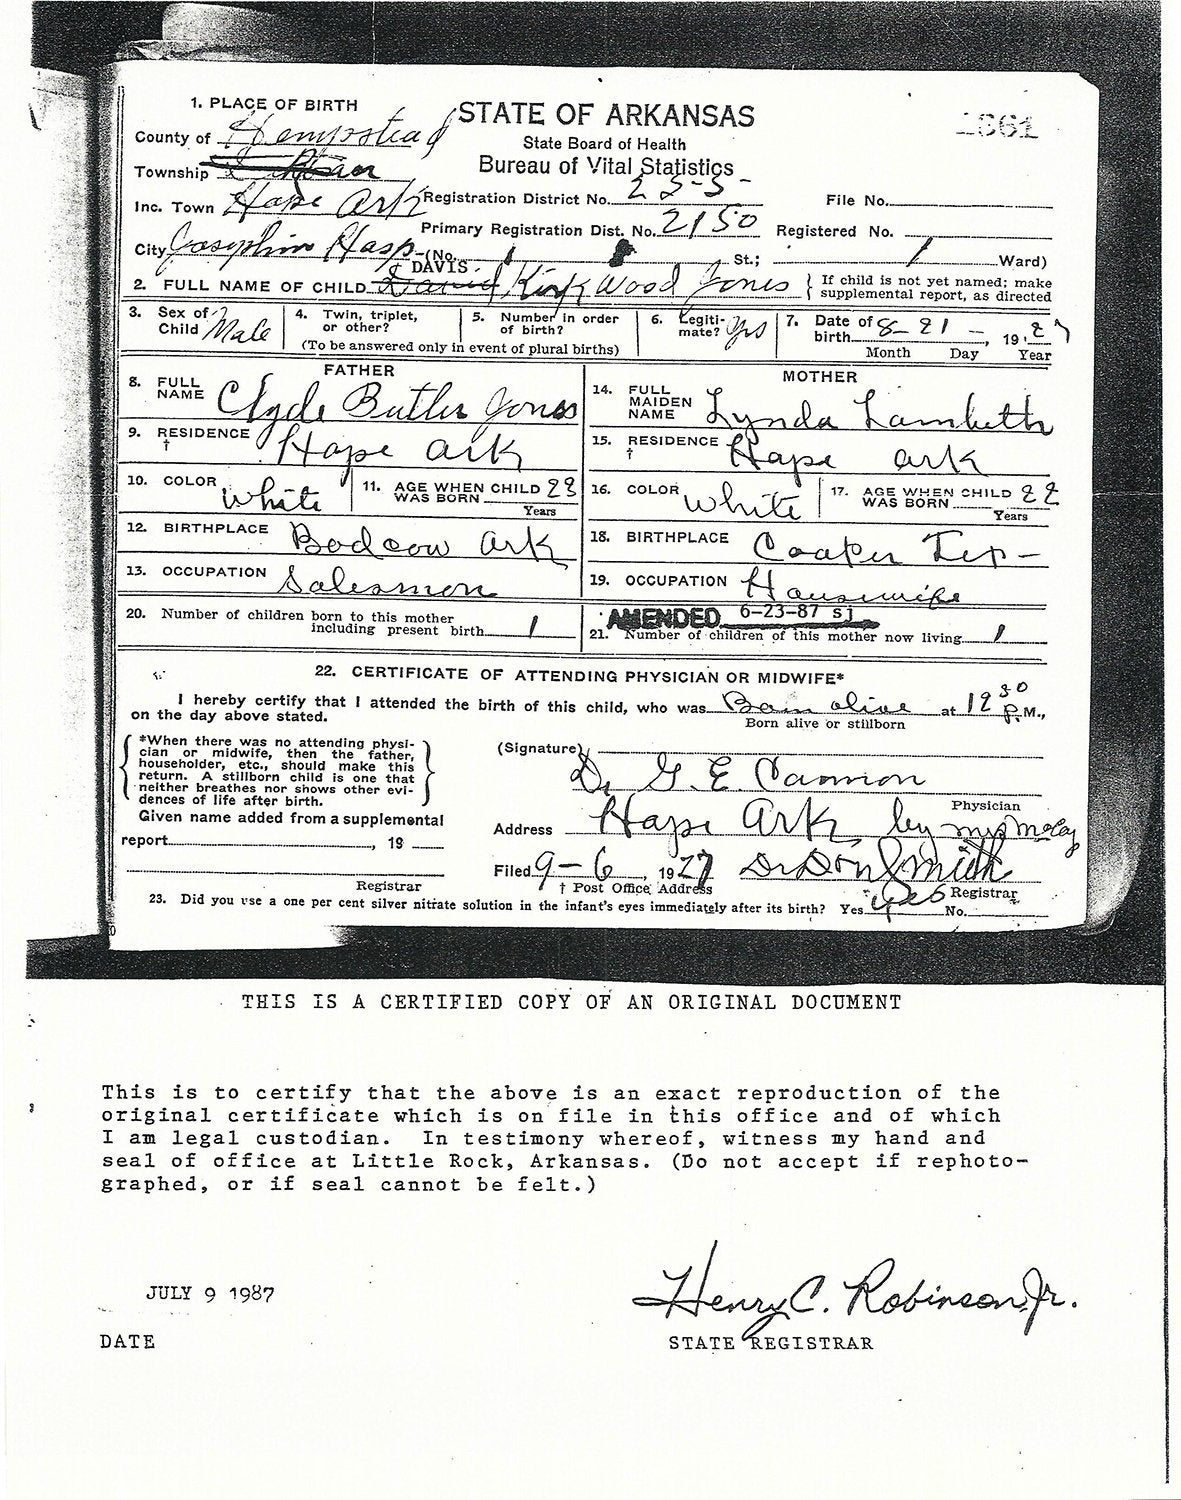 1. PLACE OF BIRTH
STATE OF ARKANSAS
State Board of Health
Bureau of Vital Statistics
County of Hempstead
Township
Inc. Town Hope Ark
Registration District No. 255-
File No.
Primary Registration Dist. No. 2150
Registered No.
City Josephine Hosp- (No. St.; Ward)
DAVIS
2. FULL NAME OF CHILD David Kirk Wood Jones { If child is not yet named; make
supplemental report, as directed
3. Sex of Child Male
4. Twin, triplet, or other?
5. Number in order of birth?
(To be answered only in event of plural births)
6. Legiti- mate? Yes
7. Date of birth 8-21-, 1927
Month Day Year
FATHER
8. FULL NAME Clyde Butler Jones
9. RESIDENCE † Hope Ark
10. COLOR White
11. AGE WHEN CHILD WAS BORN 23 Years
12. BIRTHPLACE Bodcow Ark
13. OCCUPATION Salesman
MOTHER
14. FULL MAIDEN NAME Lynda Lambeth
15. RESIDENCE † Hope Ark
16. COLOR White
17. AGE WHEN CHILD WAS BORN 22 Years
18. BIRTHPLACE Cooper Tex-
19. OCCUPATION Housewife
20. Number of children born to this mother
including present birth 1
AMENDED 6-23-87 sj
21. Number of children of this mother now living 1
22. CERTIFICATE OF ATTENDING PHYSICIAN OR MIDWIFE*
I hereby certify that I attended the birth of this child, who was Born alive at 12 30 P.M.,
on the day above stated.
Born alive or stillborn
*When there was no attending physi-
cian or midwife, then the father,
householder, etc., should make this
return. A stillborn child is one that
neither breathes nor shows other evi-
dences of life after birth.
(Signature)
Dr G. E. Cannon
Physician
Given name added from a supplemental
report, 19
Registrar
Address Hope Ark by mrs
Filed 9-6, 1927 Dr Don Smith
† Post Office Address
Registrar
23. Did you use a one per cent silver nitrate solution in the infant's eyes immediately after its birth? Yes yes No.
THIS IS A CERTIFIED COPY OF AN ORIGINAL DOCUMENT
This is to certify that the above is an exact reproduction of the
original certificate which is on file in this office and of which
I am legal custodian. In testimony whereof, witness my hand and
seal of office at Little Rock, Arkansas. (Do not accept if rephoto-
graphed, or if seal cannot be felt.)
JULY 9 1987
DATE
Henry C. Robinson, Jr.
STATE REGISTRAR